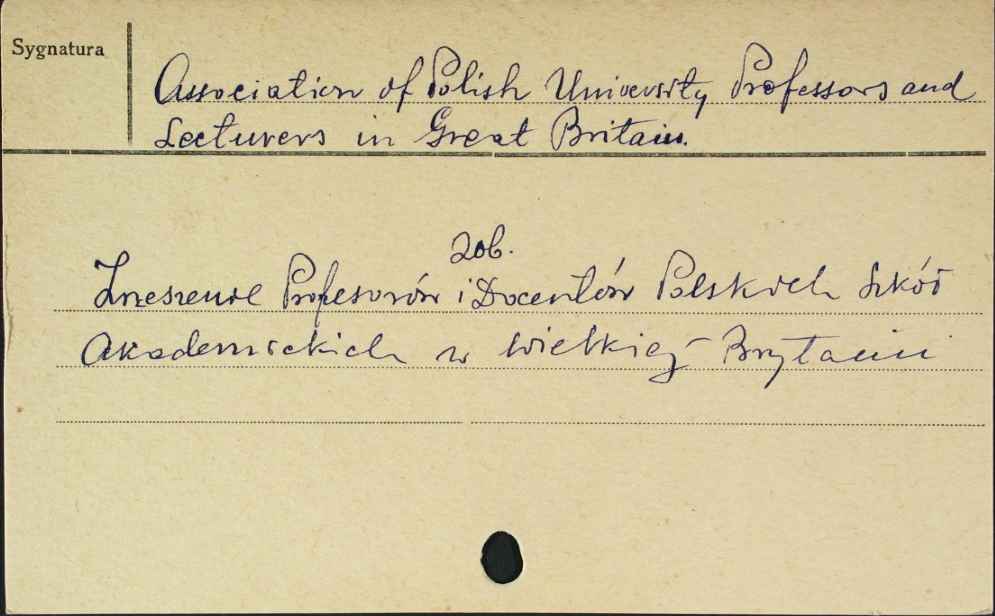 Sygnatura
Association of Polish University Professors and
Lecturers in Great Britain.
zob.
Zrzeszenie Profesorów i Docentów Polskich Szkół
Akademickich w Wielkiej Brytanii